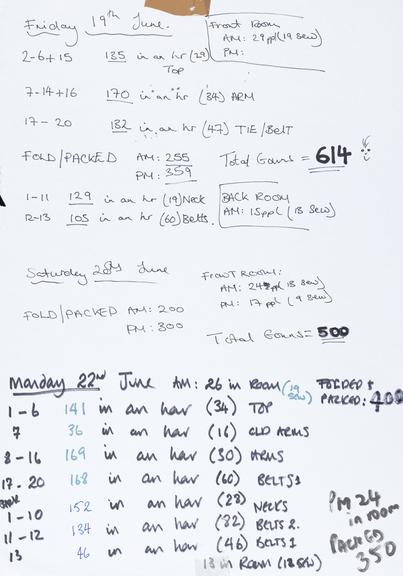 Friday 19th June.
Front Room
AM: 29ppl (19 sew)
PM:
2-6+15 135 in an hr (29)
TOP
7-14+16 170 in an hr (34) ARM
17-20 132 in an hr (47) TIE/BELT
FOLD/PACKED AM: 255
PM: 359
Total Gowns = 614
1-11 129 in an hr (19) Neck
12-13 105 in an hr (60) Belts.
BACK ROOM
AM: 15ppl (13 sew)
Saturday 20th June
FRONT ROOM:
AM: 24ppl (13 sew)
PM: 17ppl (9 sew)
FOLD/PACKED AM: 200
PM: 300
Total Gowns = 500
Monday 22nd June AM: 26 in Room (19 sew) FOLDED +
PACKED: 400
1-6 141 in an hour (34) TOP
7 36 in an hour (16) OLD ARMS
8-16 169 in an hour (30) ARMS
17-20 168 in an hour (60) BELTS 1
BACK
1-10 152 in an hour (28) NECKS
11-12 134 in an hour (32) BELTS 2.
13 46 in an hour (46) BELTS 1
13 in Room (12 sew)
PM 24
in room
PACKED
350